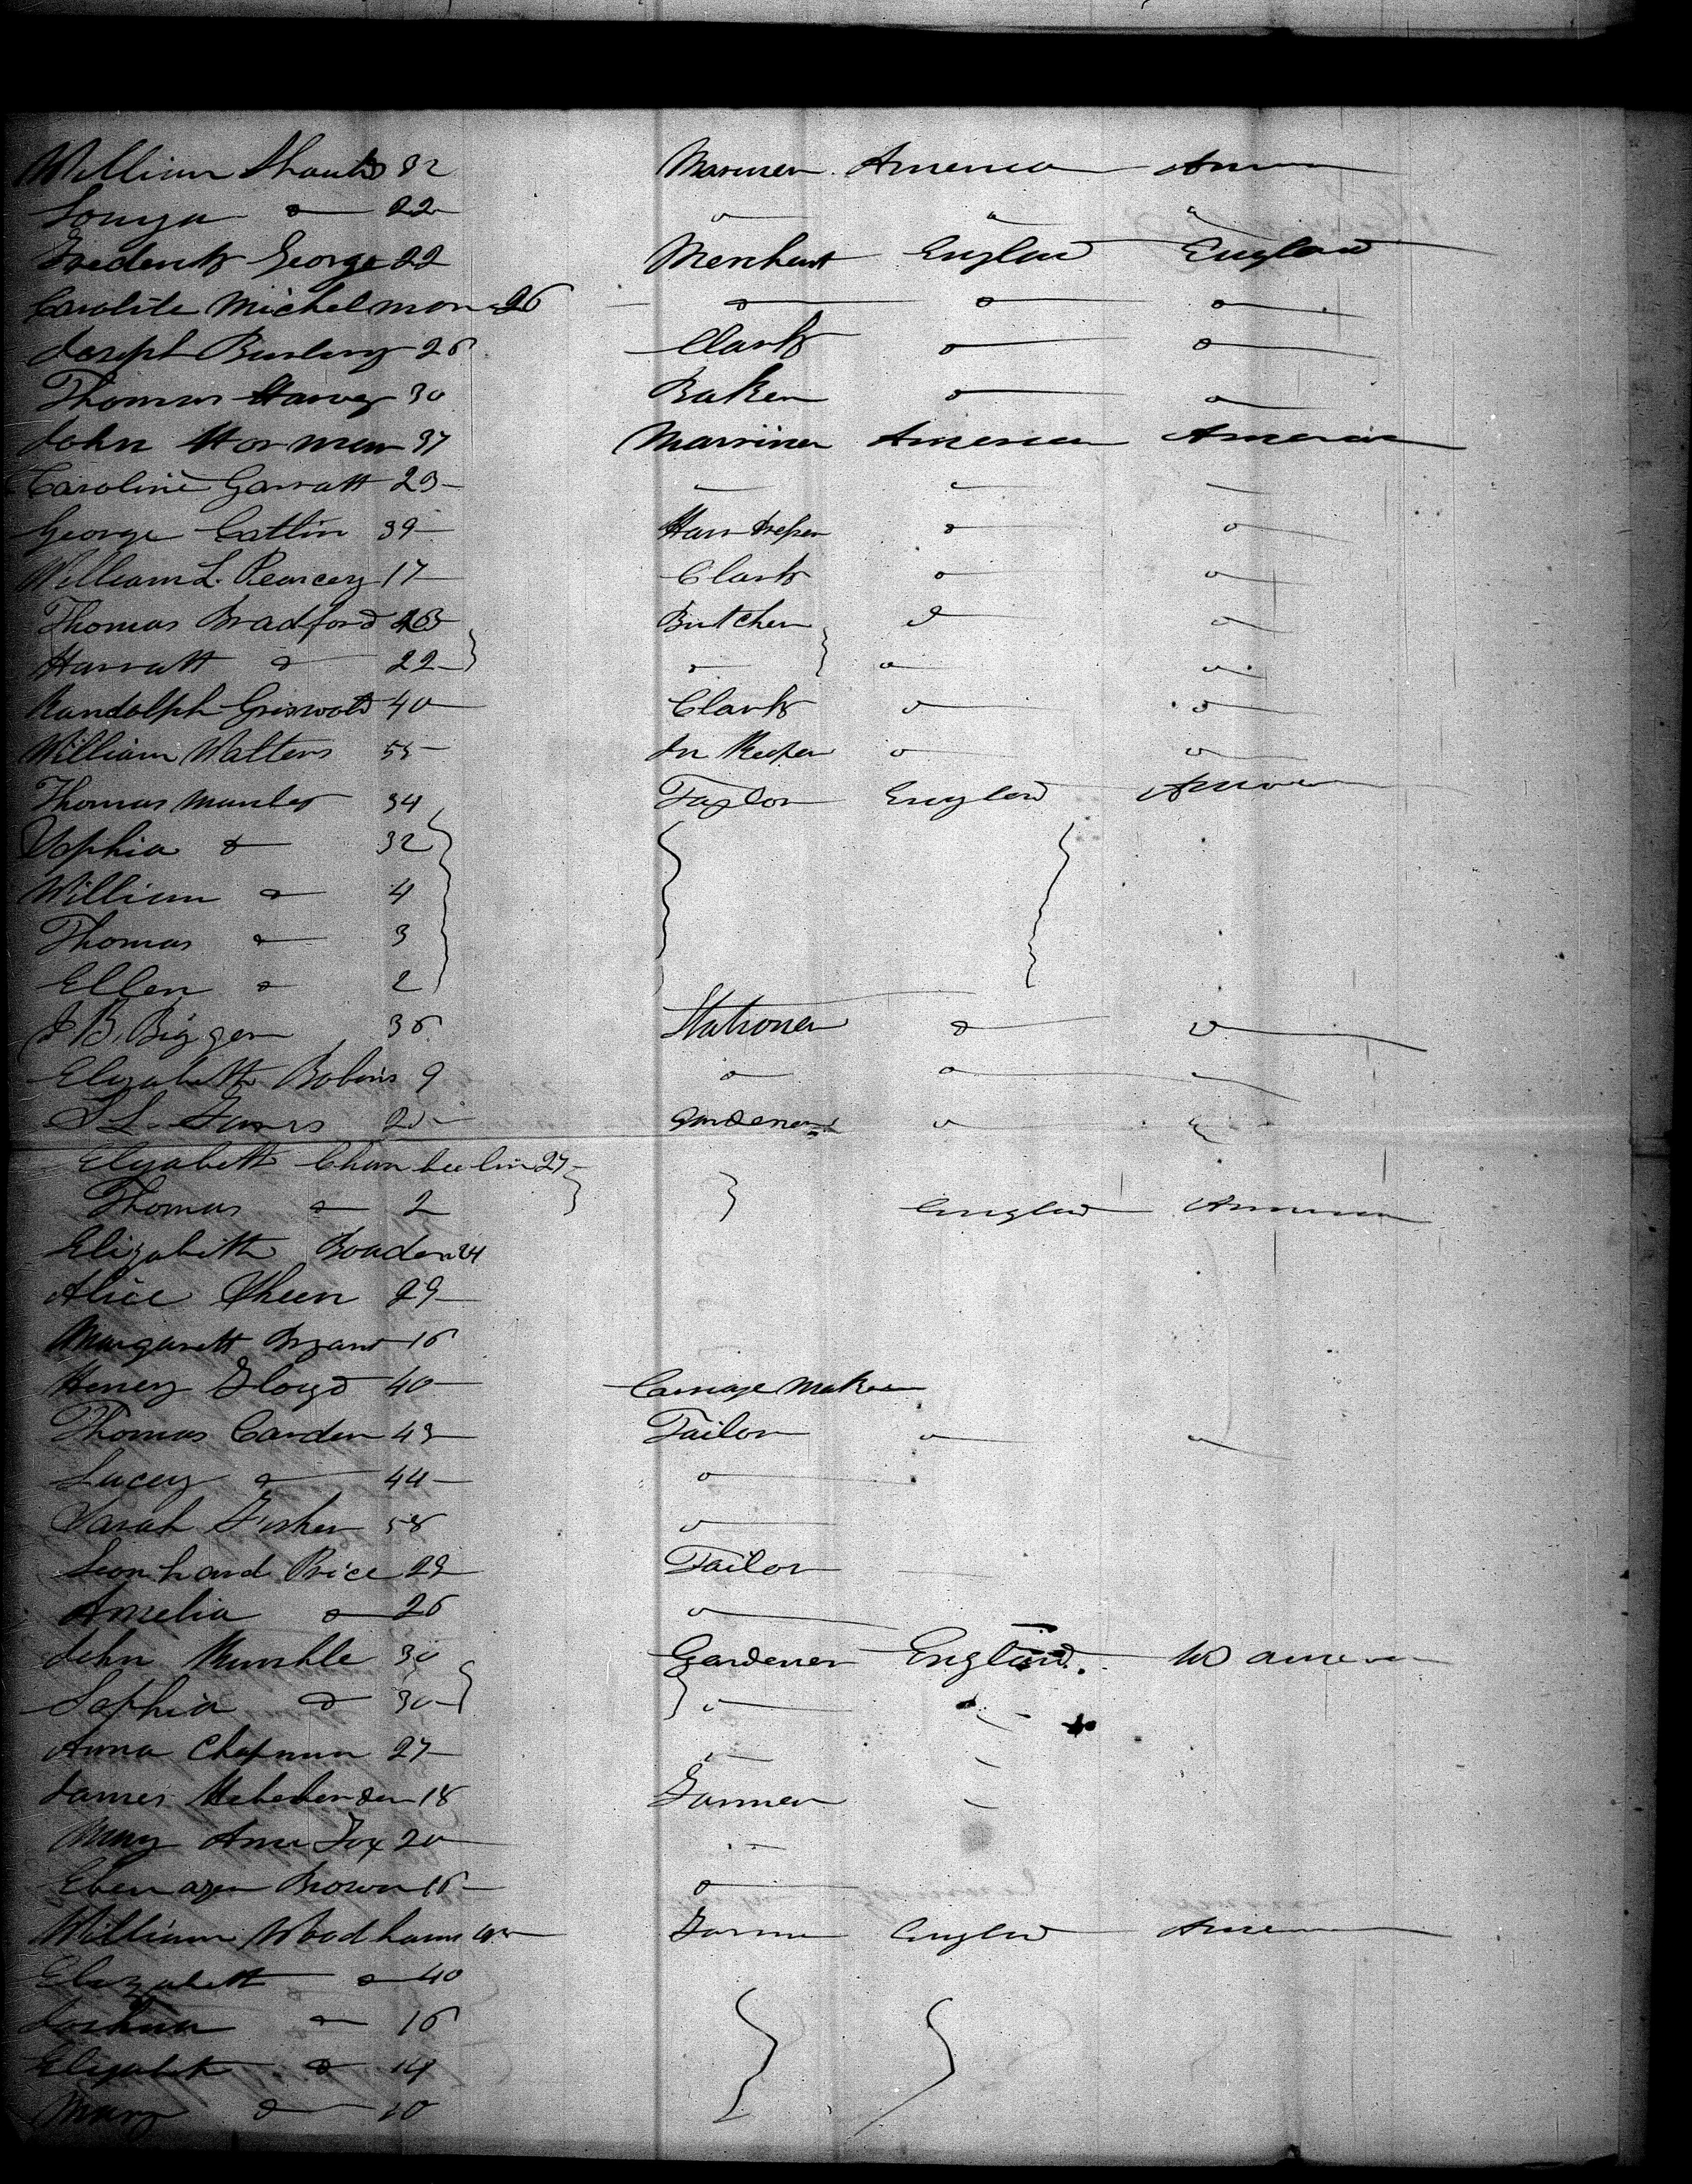 William Shants 32 Marinen America Amer
Louya do 22 " " "
Frederick George 22 Merchant England England
Carolite Michelmon 26 do do do
Joseph Burling 26 Clark do do
Thomas Harvey 30 Baker do do
John Horman 37 Marriner America America
Caroline Garratt 23
George Catlin 39 Hair Dresser do do
William L. Pearcey 17 Clark do do
Thomas Bradford 26 Butcher do do
Harratt do 22 do do do
Randolph Griswold 40 Clark do do
William Walters 55 In Keeper do do
Thomas 34 Taylor England America
Sophia do 32
William do 4
Thomas do 3
Ellen do 2
J B. Bigger 36 Stationer do do
Elizabeth Robins 9 do do
20 Gardener do
Elizabeth Chamberlin 27
Thomas do 2 England America
Elizabeth Boaden 24
Alice Sheen 29
Margarett Bryant 16
Henry Floyd 40 Carriage Maker
Thomas Carden 43 Tailor do
Lucey do 44 do
Sarah Fisher 58 do
Leonhard Price 29 Tailor
Amelia do 26 do
John Mumble 30 Gardener England to amer
Sophia do 30 do
Anna Chapman 27
James 18 Farmer
Mary Ann Fox 20
Ebenazer Brown 16 do
William Woodhams 45 Farmer England America
Elizabeth do 40
Joshua do 16
Elizabeth do 14
Mary do 10